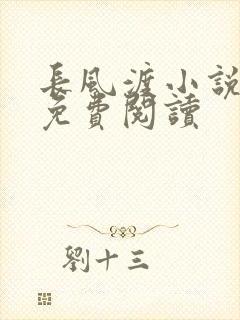 長風渡小說
免費閱讀
劉十三